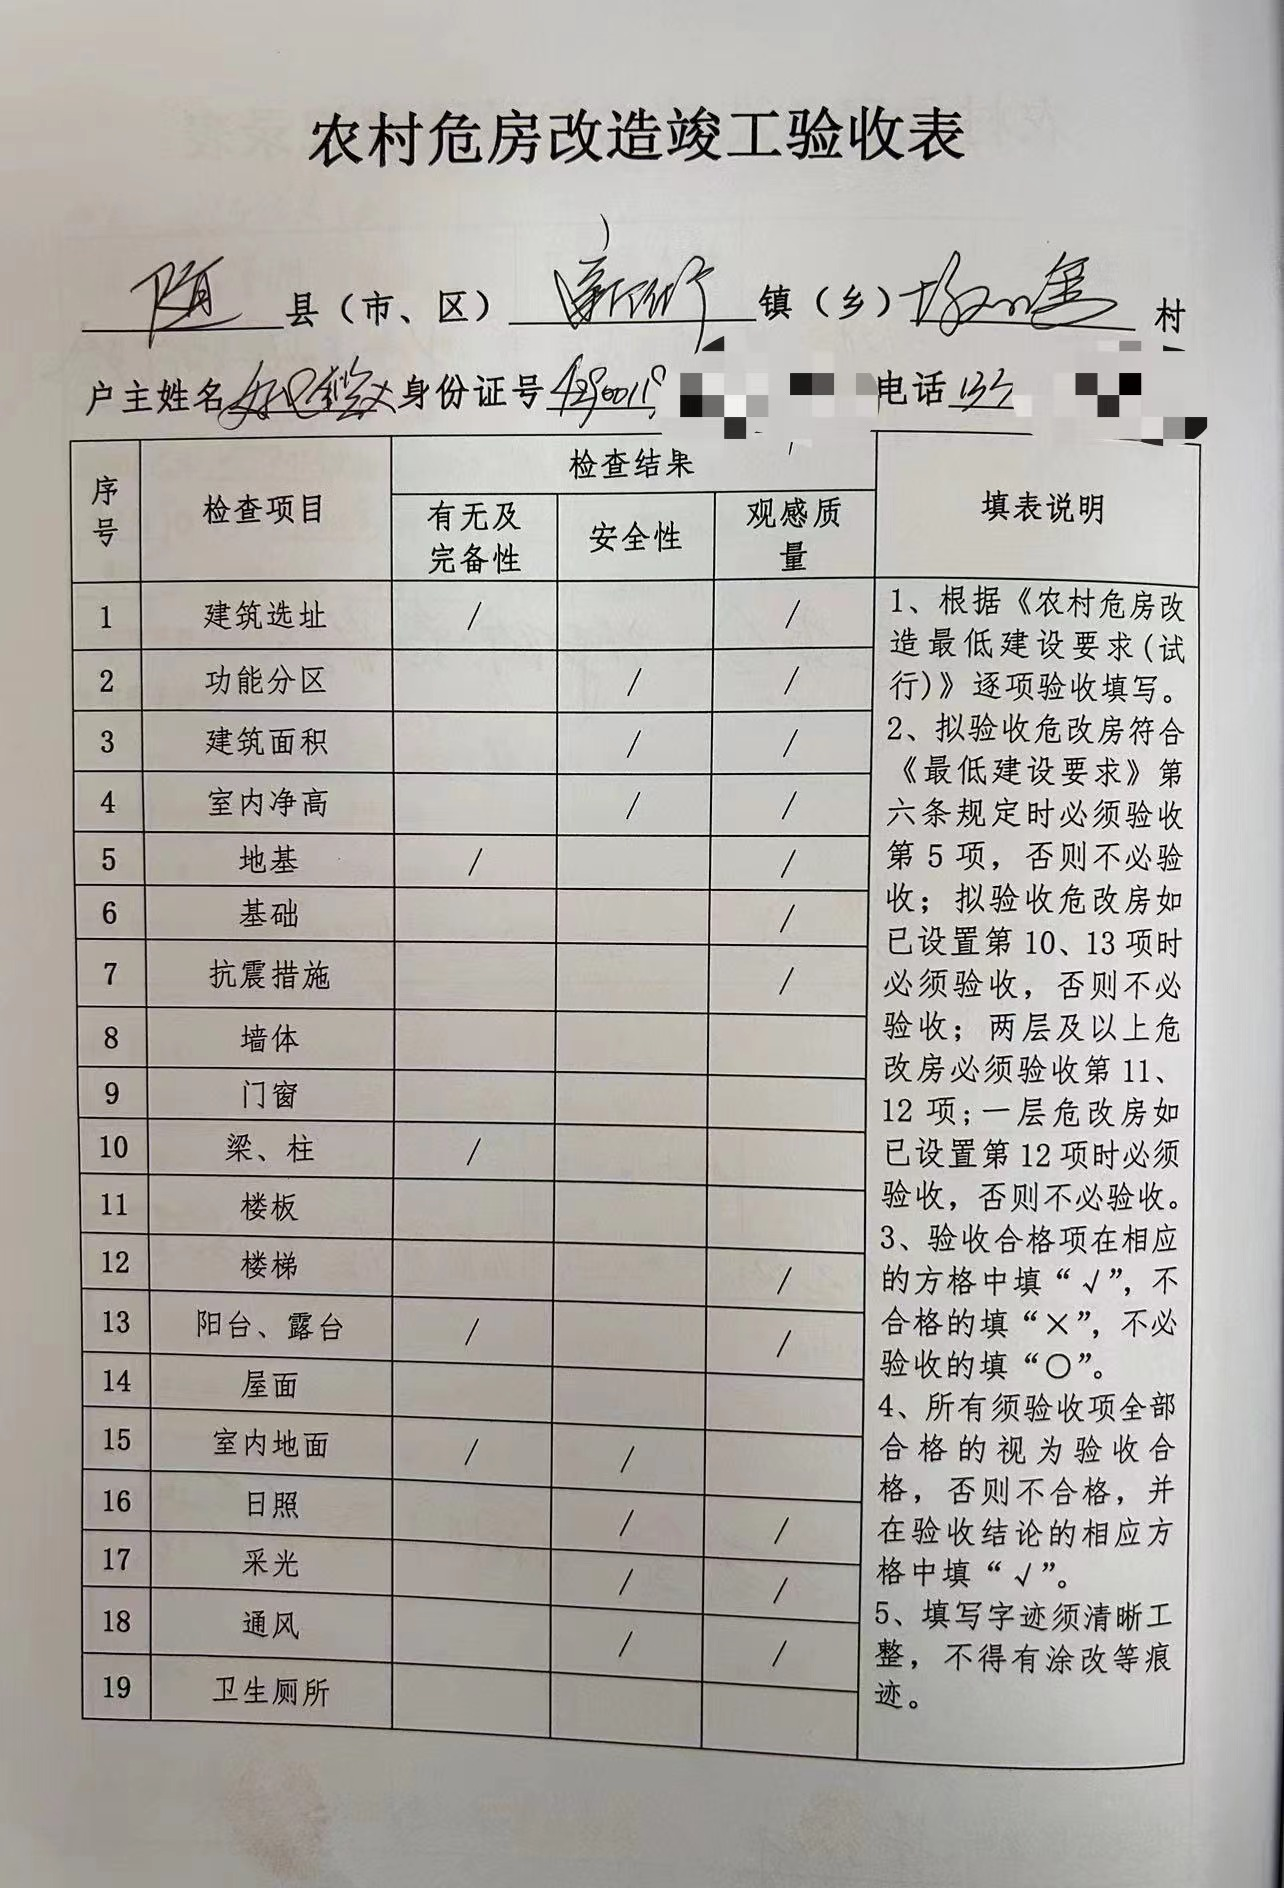 农村危房改造竣工验收表
随 县（市、区） 新街 镇（乡） 村
户主姓名 身份证号 4290011 电话 137
序号 检查项目 检查结果 填表说明
有无及完备性 安全性 观感质量
1 建筑选址 / /
2 功能分区 / /
3 建筑面积 / /
4 室内净高 / /
5 地基 / /
6 基础 /
7 抗震措施 /
8 墙体
9 门窗
10 梁、柱 /
11 楼板
12 楼梯 /
13 阳台、露台 / /
14 屋面
15 室内地面 / /
16 日照 / /
17 采光 / /
18 通风 / /
19 卫生厕所
1、根据《农村危房改
造最低建设要求(试
行)》逐项验收填写。
2、拟验收危改房符合
《最低建设要求》第
六条规定时必须验收
第5项，否则不必验
收；拟验收危改房如
已设置第10、13项时
必须验收，否则不必
验收；两层及以上危
改房必须验收第11、
12项；一层危改房如
已设置第12项时必须
验收，否则不必验收。
3、验收合格项在相应
的方格中填“√”，不
合格的填“×”，不必
验收的填“○”。
4、所有须验收项全部
合格的视为验收合
格，否则不合格，并
在验收结论的相应方
格中填“√”。
5、填写字迹须清晰工
整，不得有涂改等痕
迹。